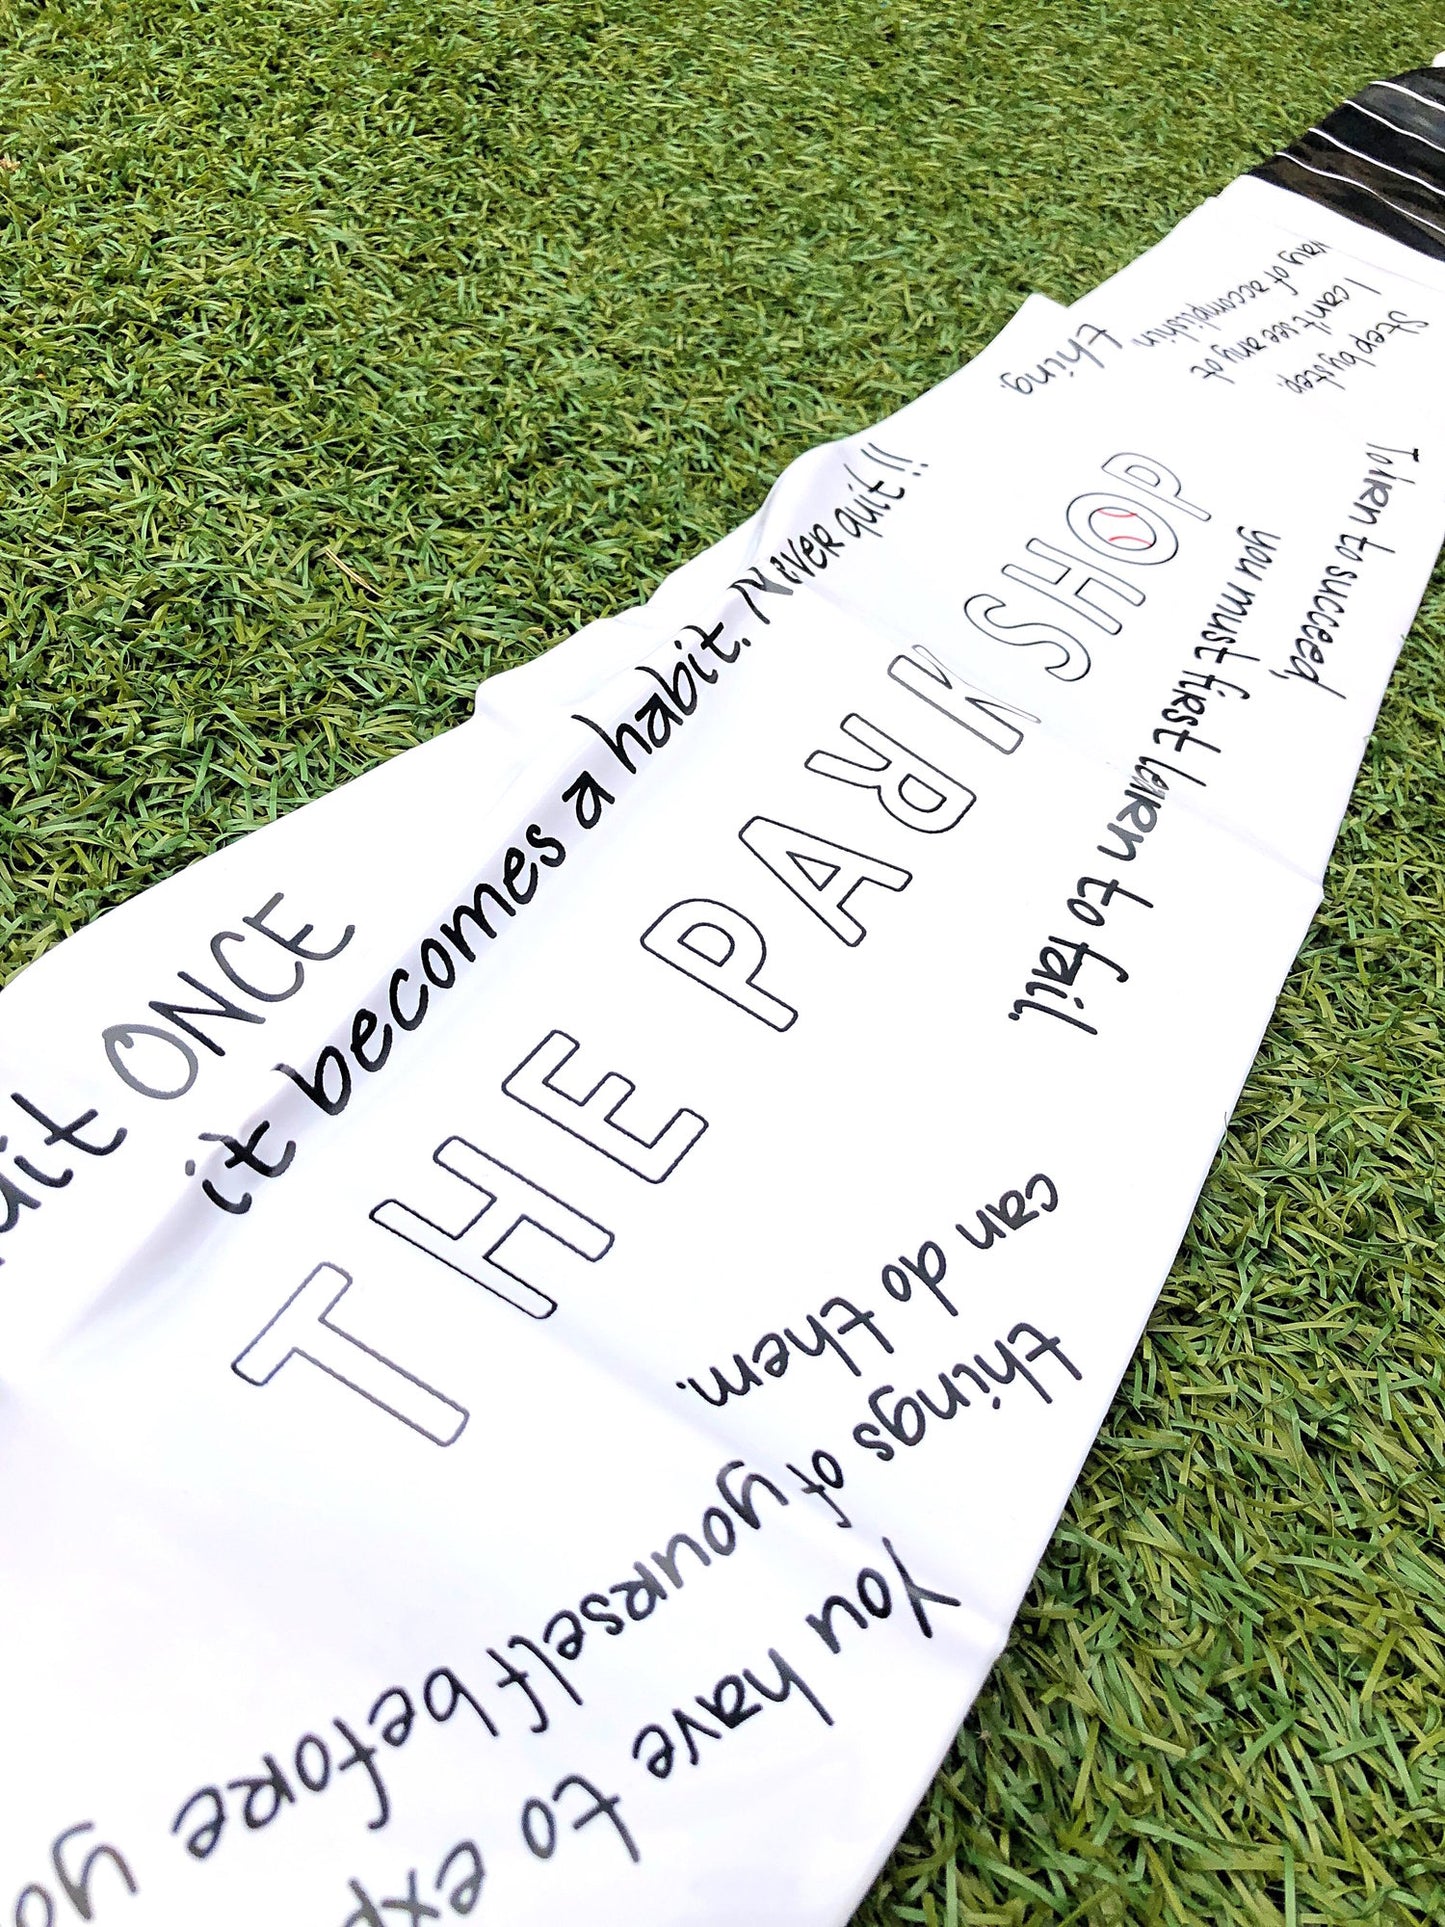 uit ONCE
it becomes a habit. Never quit!!
THE PARK SHOP
Step by step
I can't see any ot
way of accomplishin
thing
To learn to succeed,
you must first learn to fail.
You have to exp
things of yourself before yo
can do them.